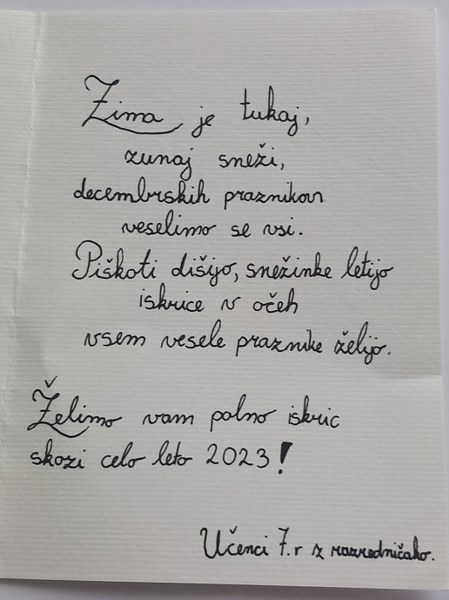 Zima je tukaj,
zunaj sneži,
decembrskih praznikov
veselimo se vsi.
Piškoti dišijo, snežinke letijo
iskrice v očeh
vsem vesele praznike želijo.
Želimo vam polno iskric
skozi celo leto 2023!
Učenci 7. r z razredničako.